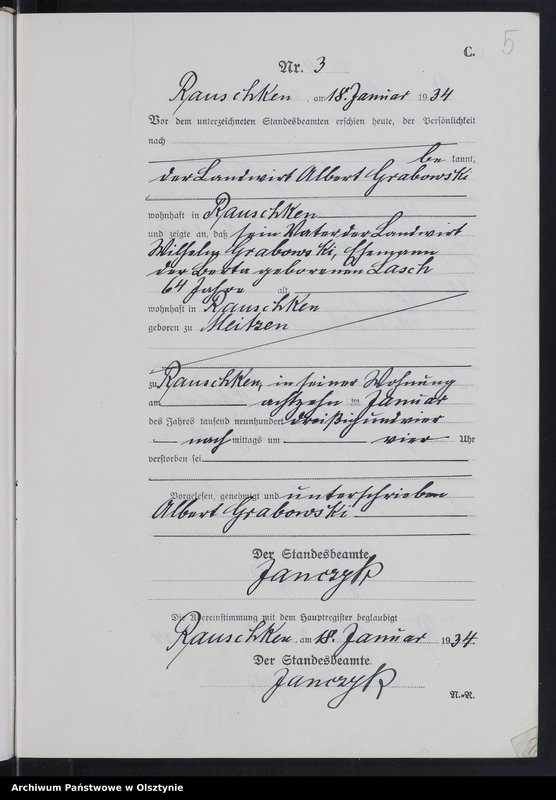 5
C.
Nr. 3
Rauschken, am 18. Januar 1934
Vor dem unterzeichneten Standesbeamten erschien heute, der Persönlichkeit
nach
be kannt,
der Landwirt Albert Grabowski
wohnhaft in Rauschken
und zeigte an, daß sein Vater der Landwirt
Wilhelm Grabowski, Ehemann
der Berta geborenen Lasch
64 Jahre alt,
wohnhaft in Rauschken
geboren zu Meitzen
zu Rauschken, in seiner Wohnung
am achtzehn ten Januar
des Jahres tausend neunhundert dreißigundvier
nach mittags um vier Uhr
verstorben sei
Vorgelesen, genehmigt und unterschrieben
Albert Grabowski
Der Standesbeamte
Janczyk
Die Übereinstimmung mit dem Hauptregister beglaubigt
Rauschken, am 18. Januar 1934.
Der Standesbeamte.
Janczyk
N.-R.
Archiwum Państwowe w Olsztynie